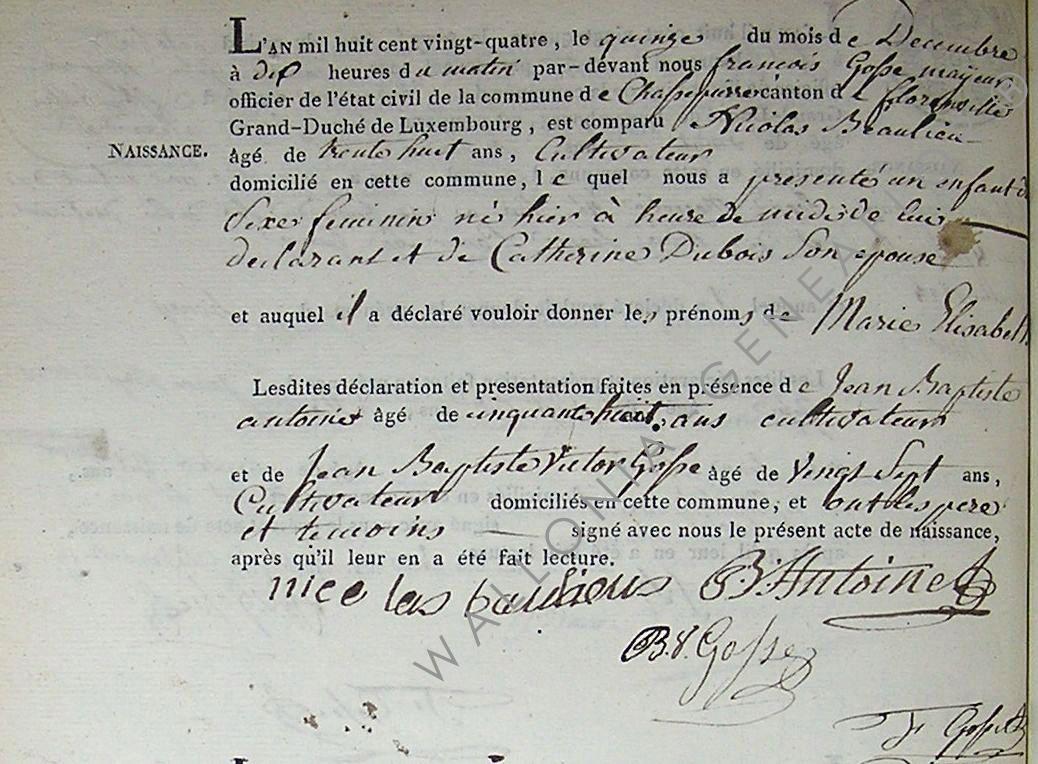 L'AN mil huit cent vingt-quatre, le quinze du mois de Decembre
à dix heures du matin par-devant nous francois Gosse mayeur
officier de l'état civil de la commune de Chassepierre canton de florenville
Grand-Duché de Luxembourg, est comparu Nicolas Beaulieu
NAISSANCE. âgé de trente huit ans, Cultivateur
domicilié en cette commune, le quel nous a présenté un enfant du
Sexe feminin né hier à heure de midi de lui
declarant et de Catherine Dubois Son epouse
et auquel il a déclaré vouloir donner les prénoms de Marie Elisabeth
Lesdites déclaration et presentation faites en présence de Jean Baptiste
antoine âgé de cinquante huit ans cultivateur
et de Jean Baptiste Victor Gosse âgé de Vingt Sept ans,
Cultivateur domiciliés en cette commune, et ont les peres
et temoins signé avec nous le présent acte de naissance,
après qu'il leur en a été fait lecture.
nico las B. Antoine
B.V. Gosse
F Gosse
WALLONIA GENEA